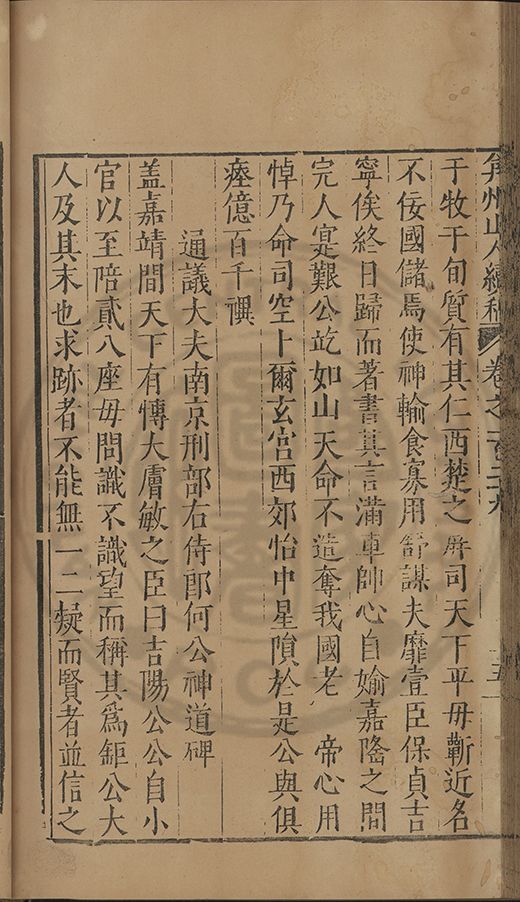 弇州山人續稿 卷之一百三十九 十五
于牧于旬質有其仁西楚之 司天下平毋蘄近名
不佞國儲焉使神輸食寡用舒謀夫靡壹臣保貞吉
寧俟終日歸而著書其言滿車帥心自媮嘉隆之間
完人寔艱公屹如山天命不造奪我國老 帝心用
悼乃命司空卜爾玄宮西郊怡中星隕於是公與俱
瘞億百千禩
通議大夫南京刑部右侍郎何公神道碑
盖嘉靖間天下有博大膚敏之臣曰吉陽公公自小
官以至陪貳八座毋問識不識望而稱其爲鉅公大
人及其末也求跡者不能無一二疑而賢者並信之